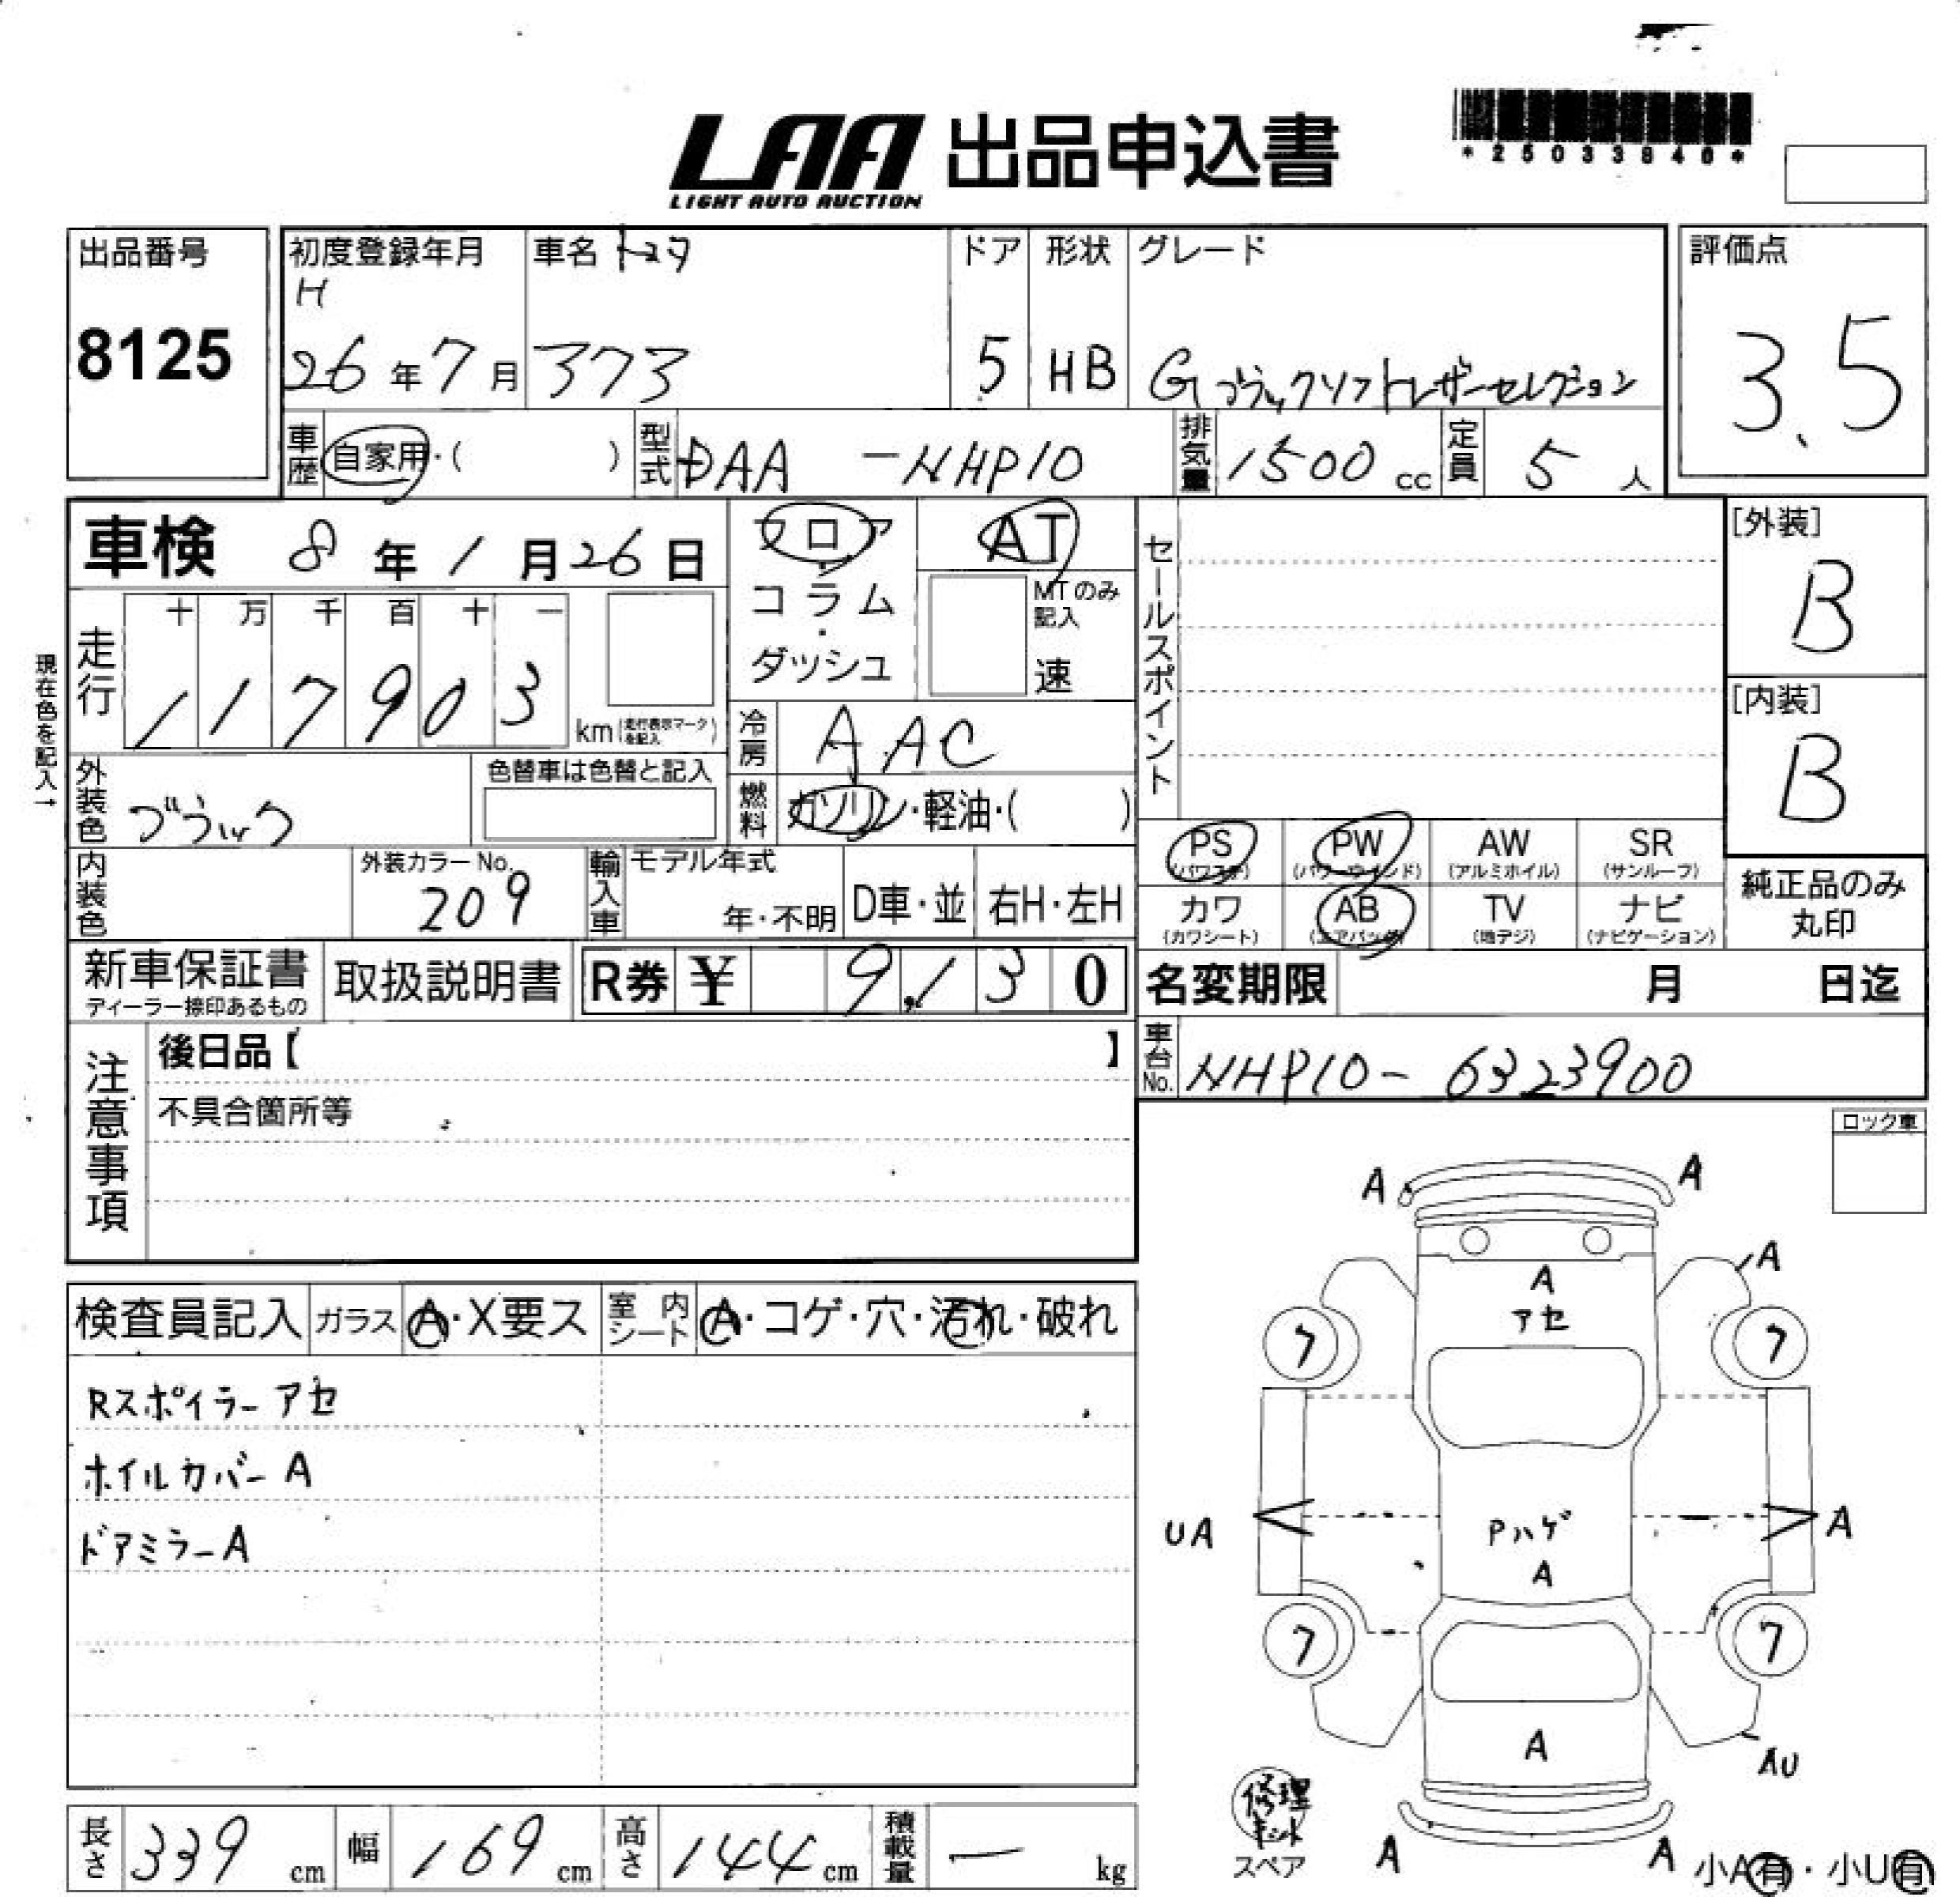 LAA 出品申込書
LIGHT AUTO AUCTION
*25033840*
出品番号
8125
初度登録年月
H
26年7月
車名 トヨタ
373
ドア
5
形状
HB
グレード
G ブラックソフトレザーセレクション
評価点
3.5
車歴 自家用・( )
型式 DAA -NHP10
排気量 1500 cc
定員 5 人
車検 8年1月26日
フロア・コラム・ダッシュ
AT
MTのみ記入
速
セールスポイント
[外装]
B
[内装]
B
現在色を記入→
走行
十 万 千 百 十 一
1 1 7 9 0 3
km(走行表示マークを記入)
冷房 AAC
燃料 ガソリン・軽油・( )
外装色 ブラック
色替車は色替と記入
内装色
外装カラーNo.
209
輸入車
モデル年式
年・不明
D車・並
右H・左H
PS (パワステ)
PW (パワーウインド)
AW (アルミホイル)
SR (サンルーフ)
カワ (カワシート)
AB (エアバック)
TV (地デジ)
ナビ (ナビゲーション)
純正品のみ
丸印
新車保証書
ディーラー捺印あるもの
取扱説明書
R券 ¥ 9,130
名変期限 月 日迄
車台No. NHP10-6323900
注意事項
後日品【 】
不具合箇所等
ロック車
検査員記入
ガラス A・X要ス
室内シート A・コゲ・穴・汚れ・破れ
Rスポイラー アセ
ホイルカバー A
ドアミラー A
A A
A
A
アセ
7 7
UA
Pハゲ
A
A
7 7
A
AU
修理キット
スペア
A A
小A有・小U有
長さ 339 cm
幅 169 cm
高さ 144 cm
積載量 ー kg